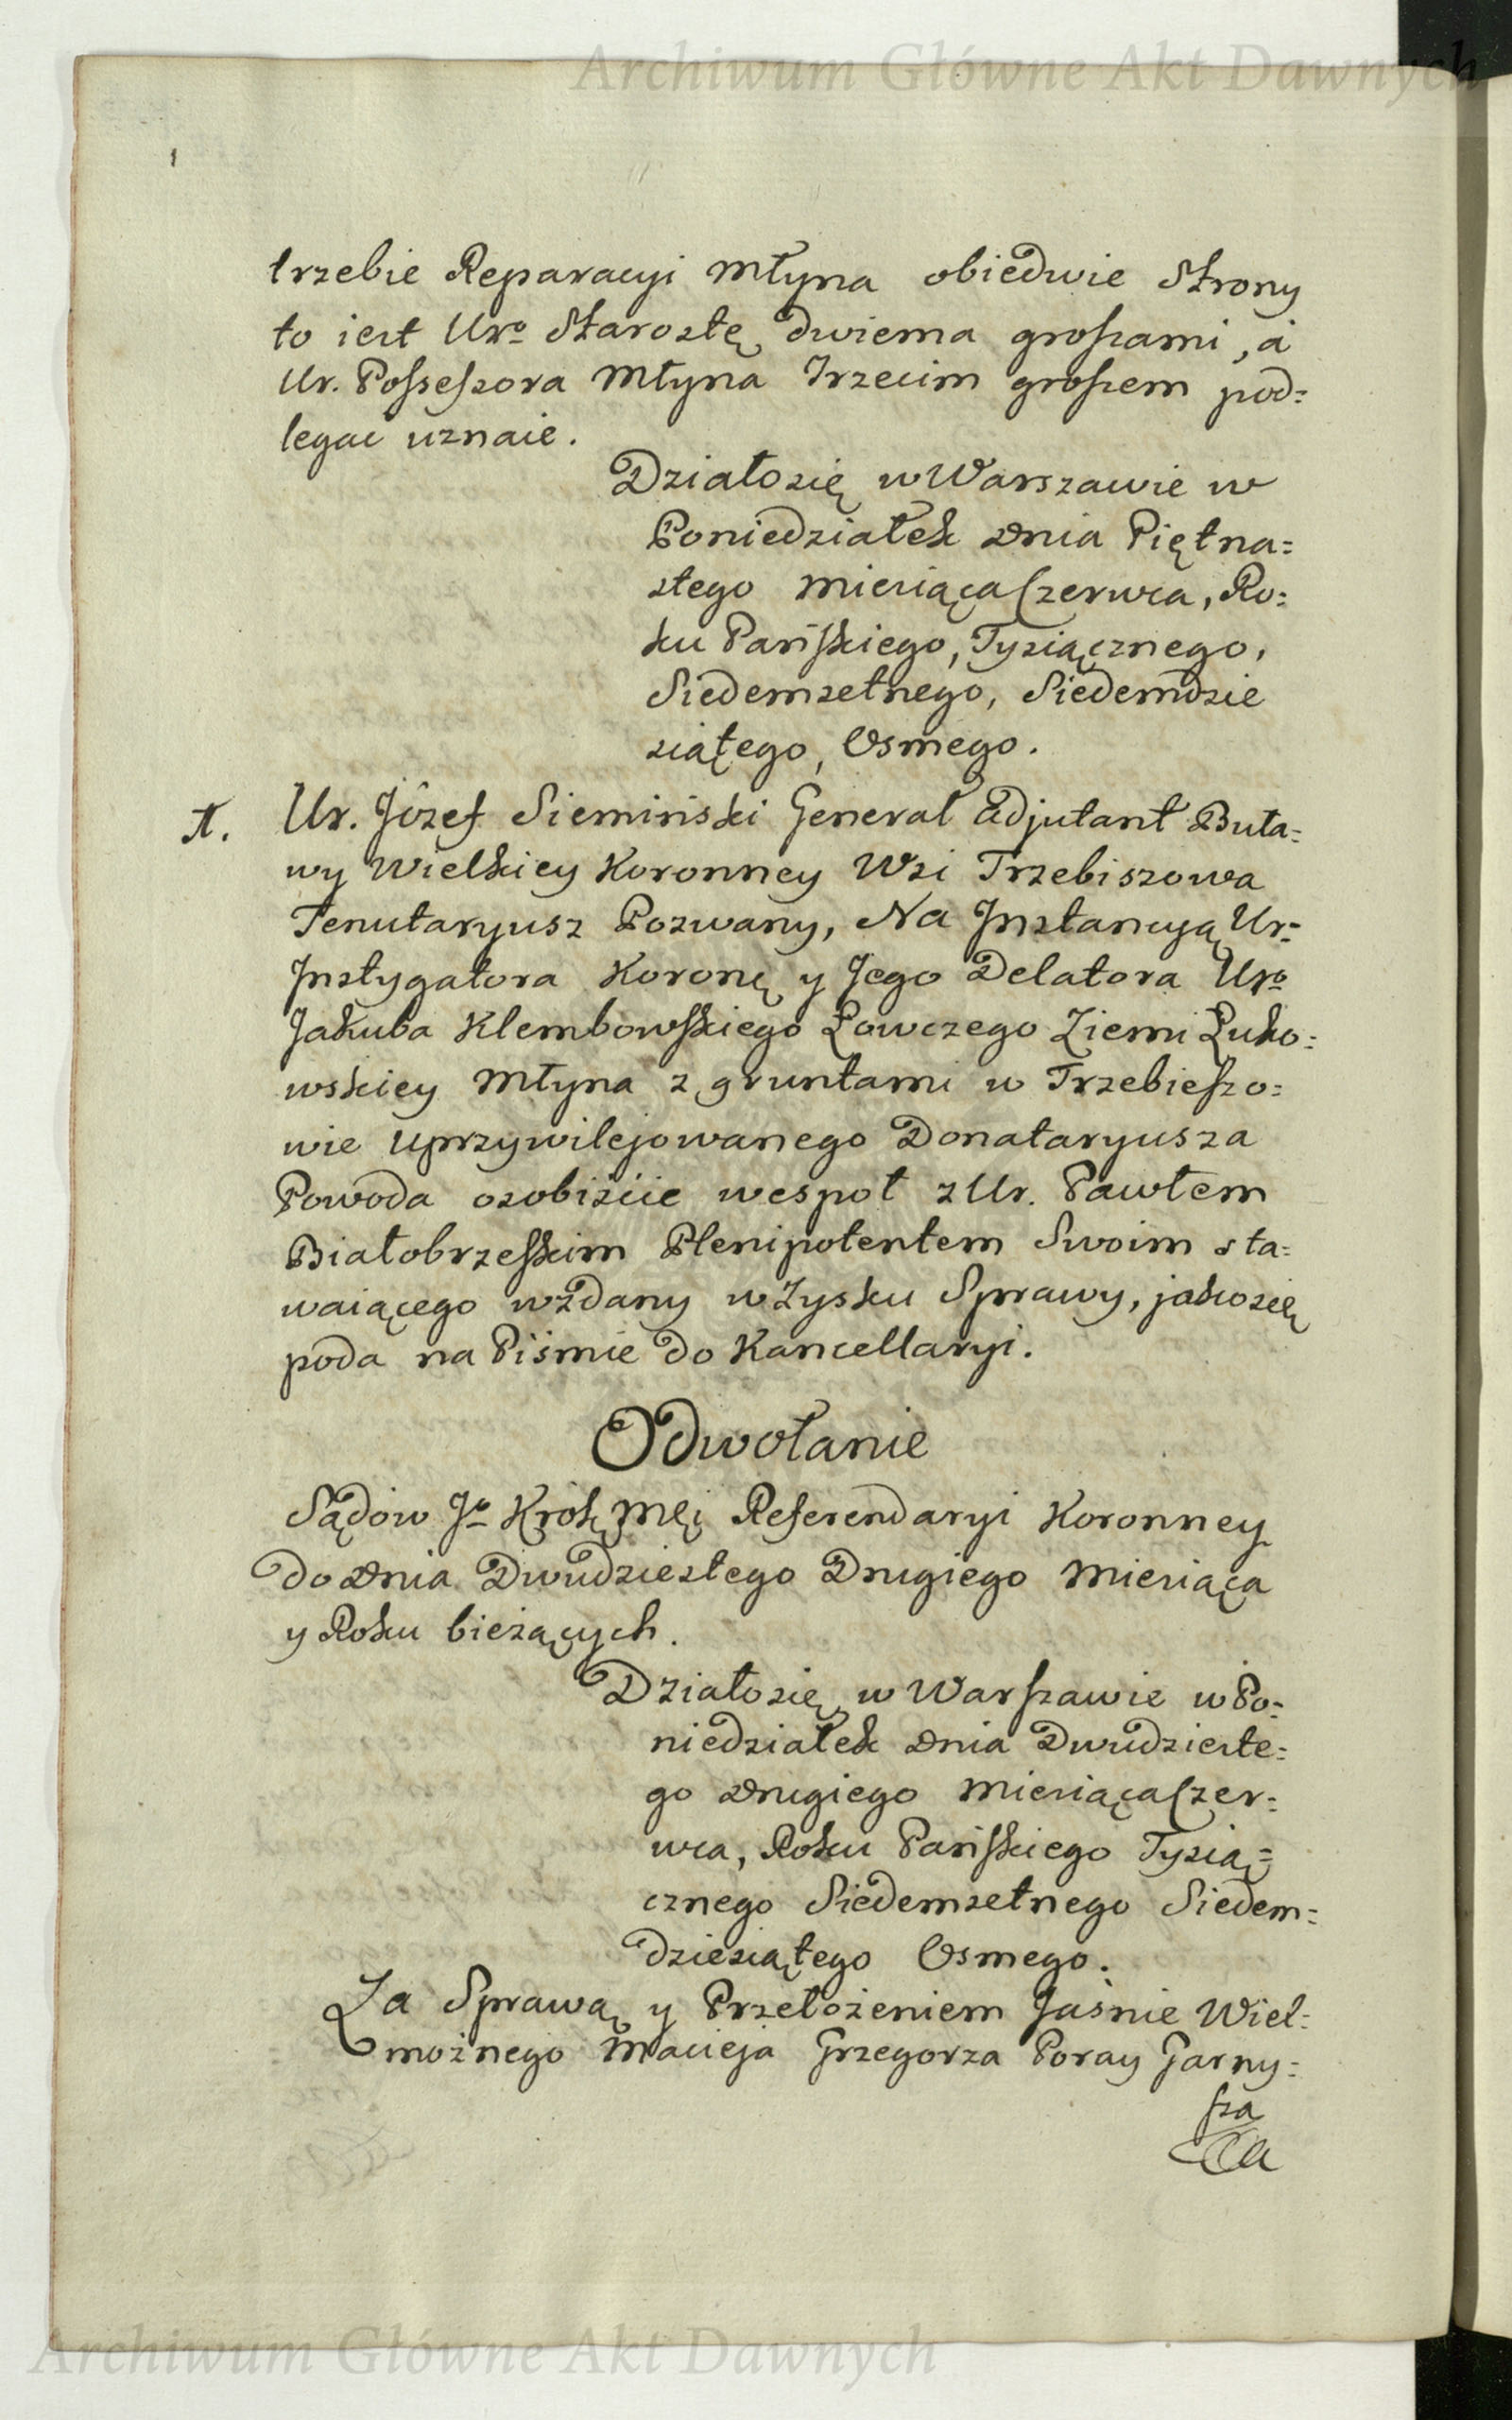 Archiwum Główne Akt Dawnych
trzebie Reparacyi Młyna obiedwie Strony
to iest Uro Starostę dwiema groszami, a
Ur. Possessora Młyna Trzecim groszem pod=
legac uznaie.
Działosię w Warszawie w
Poniedziałek dnia Piętna=
stego Miesiąca Czerwca, Ro=
ku Pańskiego, Tysiącznego,
Siedemsetnego, Siedemdzie
siątego, Osmego.
Ur. Józef Siemiński Generał Adjutant Buła=
wy Wielkiey Koronney Wsi Trzebiszowa
Tenutaryusz Pozwany, Na Instancyą Ur=
Instygatora Koronę y Jego Delatora Uro
Jakuba Klembowskiego Łowczego Ziemi Łuko=
wskiey Młyna z gruntami w Trzebieszo=
wie uprzywilejowanego Donataryusza
Powoda osobiście wespoł z Ur. Pawłem
Białobrzeskim Plenipotentem Swoim sta=
waiącego wzdany w Zysku Sprawy, jakosię
poda na Piśmie do Kancellaryi.
Odwołanie
Sądów Jo Krók Mći Referendaryi Koronney
do dnia Dwudziestego Drugiego Miesiąca
y Roku bieżących.
Działosię w Warszawie w Po=
niedziałek dnia Dwudzieste=
go drugiego Miesiąca Czer=
wca, Roku Pańskiego Tysią=
cznego Siedemsetnego Siedem=
dziesiątego Osmego.
Za Sprawą y Przełożeniem Jaśnie Wiel=
możnego Macieja Grzegorza Poray Garny=
sza
Archiwum Główne Akt Dawnych